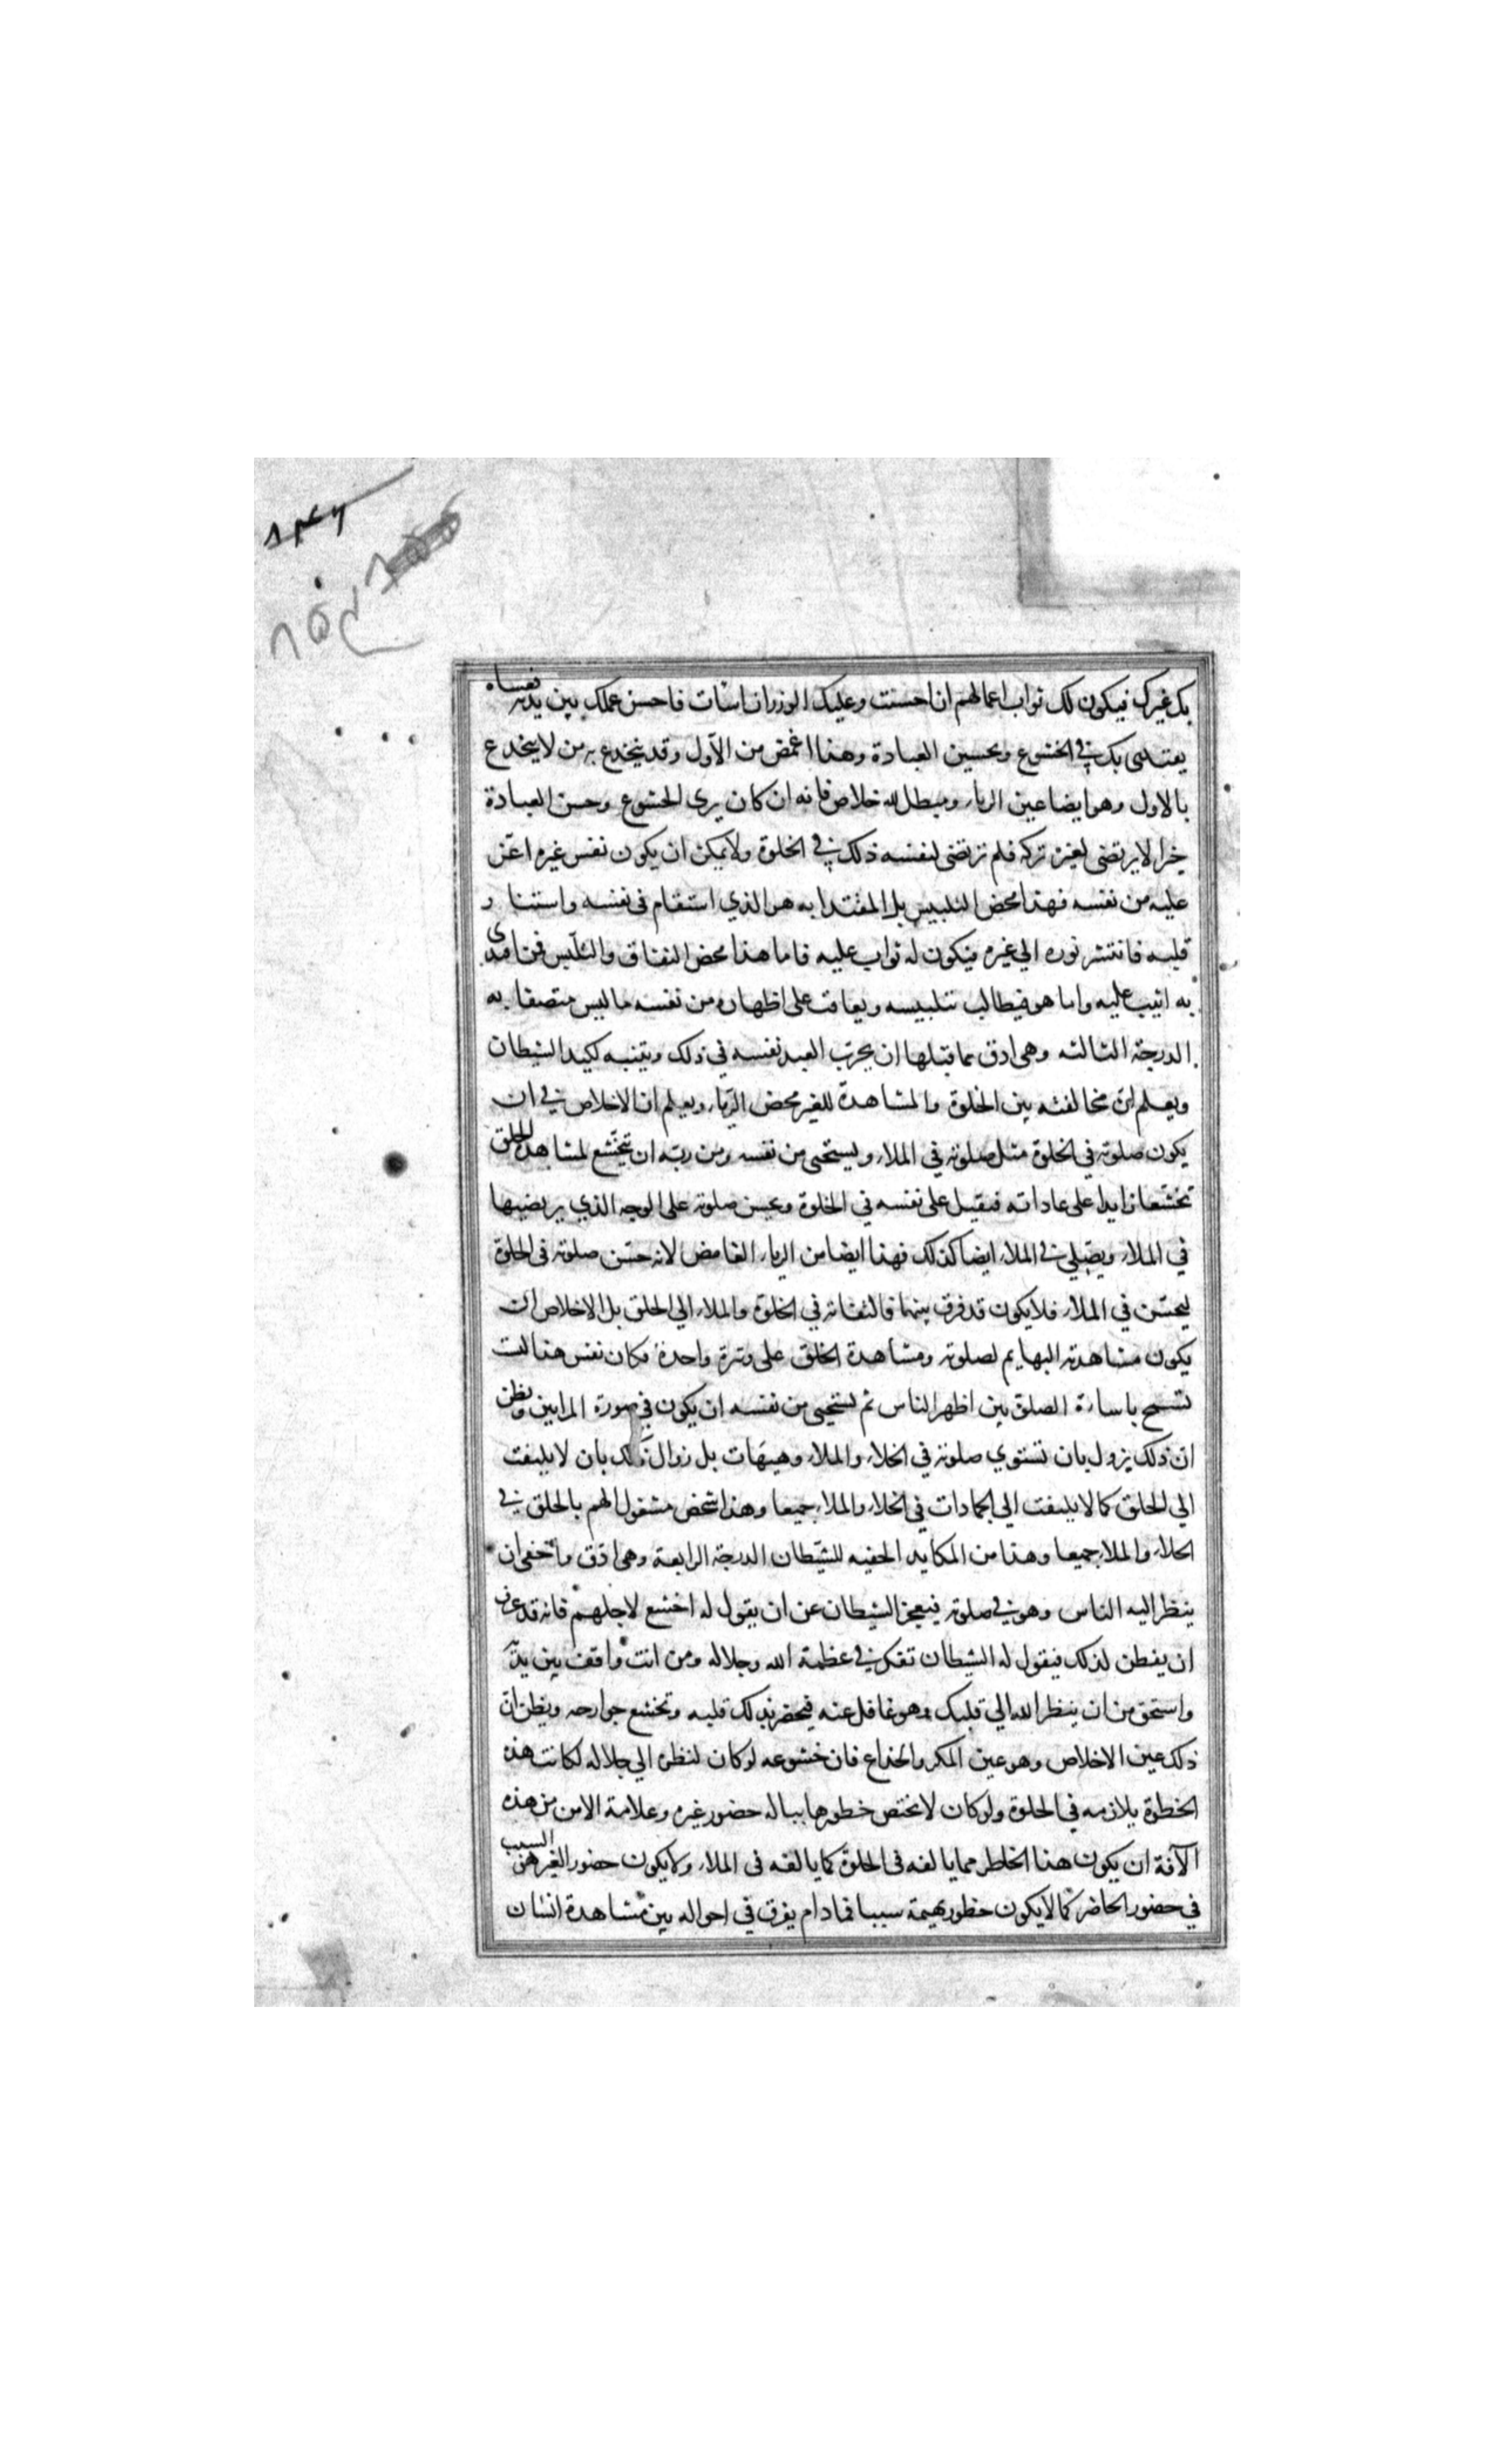 بك غيرك فيكون لك ثواب اعمالهم ان احسنت وعليك الوزر ان اسات فاحسن عملك بين يديه فعساه
يقتدى بك في الخشوع وتحسين العبادة وهذا اغمض من الاول وقد ينخدع به من لا ينخدع
بالاول وهو ايضا عين الرياء ومبطل للاخلاص فانه ان كان يرى الخشوع وحسن العبادة
خيرا لا يرتضى لغيره تركه فلم ترتضى لنفسه ذلك في الخلوة ولا يمكن ان يكون نفس غيره اعز
عليه من نفسه فهذا محض التلبيس بل المقتدا به هو الذي استقام في نفسه واستنار
قلبه فانتشر نوره الي غيره فيكون له ثواب عليه فاما هذا محض النفاق والتلبيس فمن اقتدى
به اثيب عليه واما هو فيطالب بتلبيسه ويعاقب على اظهاره من نفسه ما ليس متصفا به
الدرجة الثالثه وهي ادق مما قبلها ان يجرب العبد نفسه في ذلك ويتنبه لكيد الشيطان
ويعلم ان مخالفته بين الخلوة والمشاهدة للغير محض الرياء ويعلم ان الاخلاص في ان
يكون صلوته في الخلوة مثل صلوته في الملاء ويستحيى من نفسه ومن ربه ان يتخشع لمشاهدة الخلق
تخشعا زايدا على عاداته فيقبل على نفسه في الخلوة ويحسن صلوته على الوجه الذي يرتضيها
في الملاء ويصلي في الملاء ايضا كذلك فهذا ايضا من الرياء الغامض لانه حسن صلوته في الخلوة
ليحسن في الملاء فلا يكون قد فرق بينهما فالتفاته في الخلوة والملاء الي الخلق بل الاخلاص ان
يكون مشاهدته البهايم لصلوته ومشاهدة الخلق على وتيرة واحدة فكان نفس هذا ليست
تسمح باساءة الصلوة بين اظهر الناس ثم يستحيى من نفسه ان يكون في صورة المرايين ويظن
ان ذلك يزول بان تستوي صلوته في الخلاء والملاء وهيهات بل زوال ذلك بان لا يلتفت
الي الخلق كما لا يلتفت الي الجمادات في الخلاء والملاء جميعا وهذا شخص مشغول الهم بالخلق في
الخلاء والملاء جميعا وهذا من المكايد الخفيه للشيطان الدرجة الرابعة وهي ادق واخفى ان
ينظر اليه الناس وهو في صلوته فيعجز الشيطان عن ان يقول له اخشع لاجلهم فانه قد عرف
ان يفطن لذلك فيقول له الشيطان تفكر في عظمة الله وجلاله ومن انت واقف بين يديه
واستحي من ان ينظر الله الي قلبك وهو غافل عنه فيحضر بذلك قلبه وتخشع جوارحه ويظن ان
ذلك عين الاخلاص وهو عين المكر والخداع فان خشوعه لو كان لنظره الي جلاله لكانت هذه
الخطرة يلازمه في الخلوة ولو كان لا يختص خطورها بباله حضور غيره وعلامة الامن من هذه
الآفة ان يكون هذا الخاطر مما يالفه في الخلوة كما يالفه في الملاء ولا يكون حضور الغير هو السبب
في حضور الخاطر كما لا يكون حظور بهيمة سببا فمادام يفرق في احواله بين مشاهدة انسان